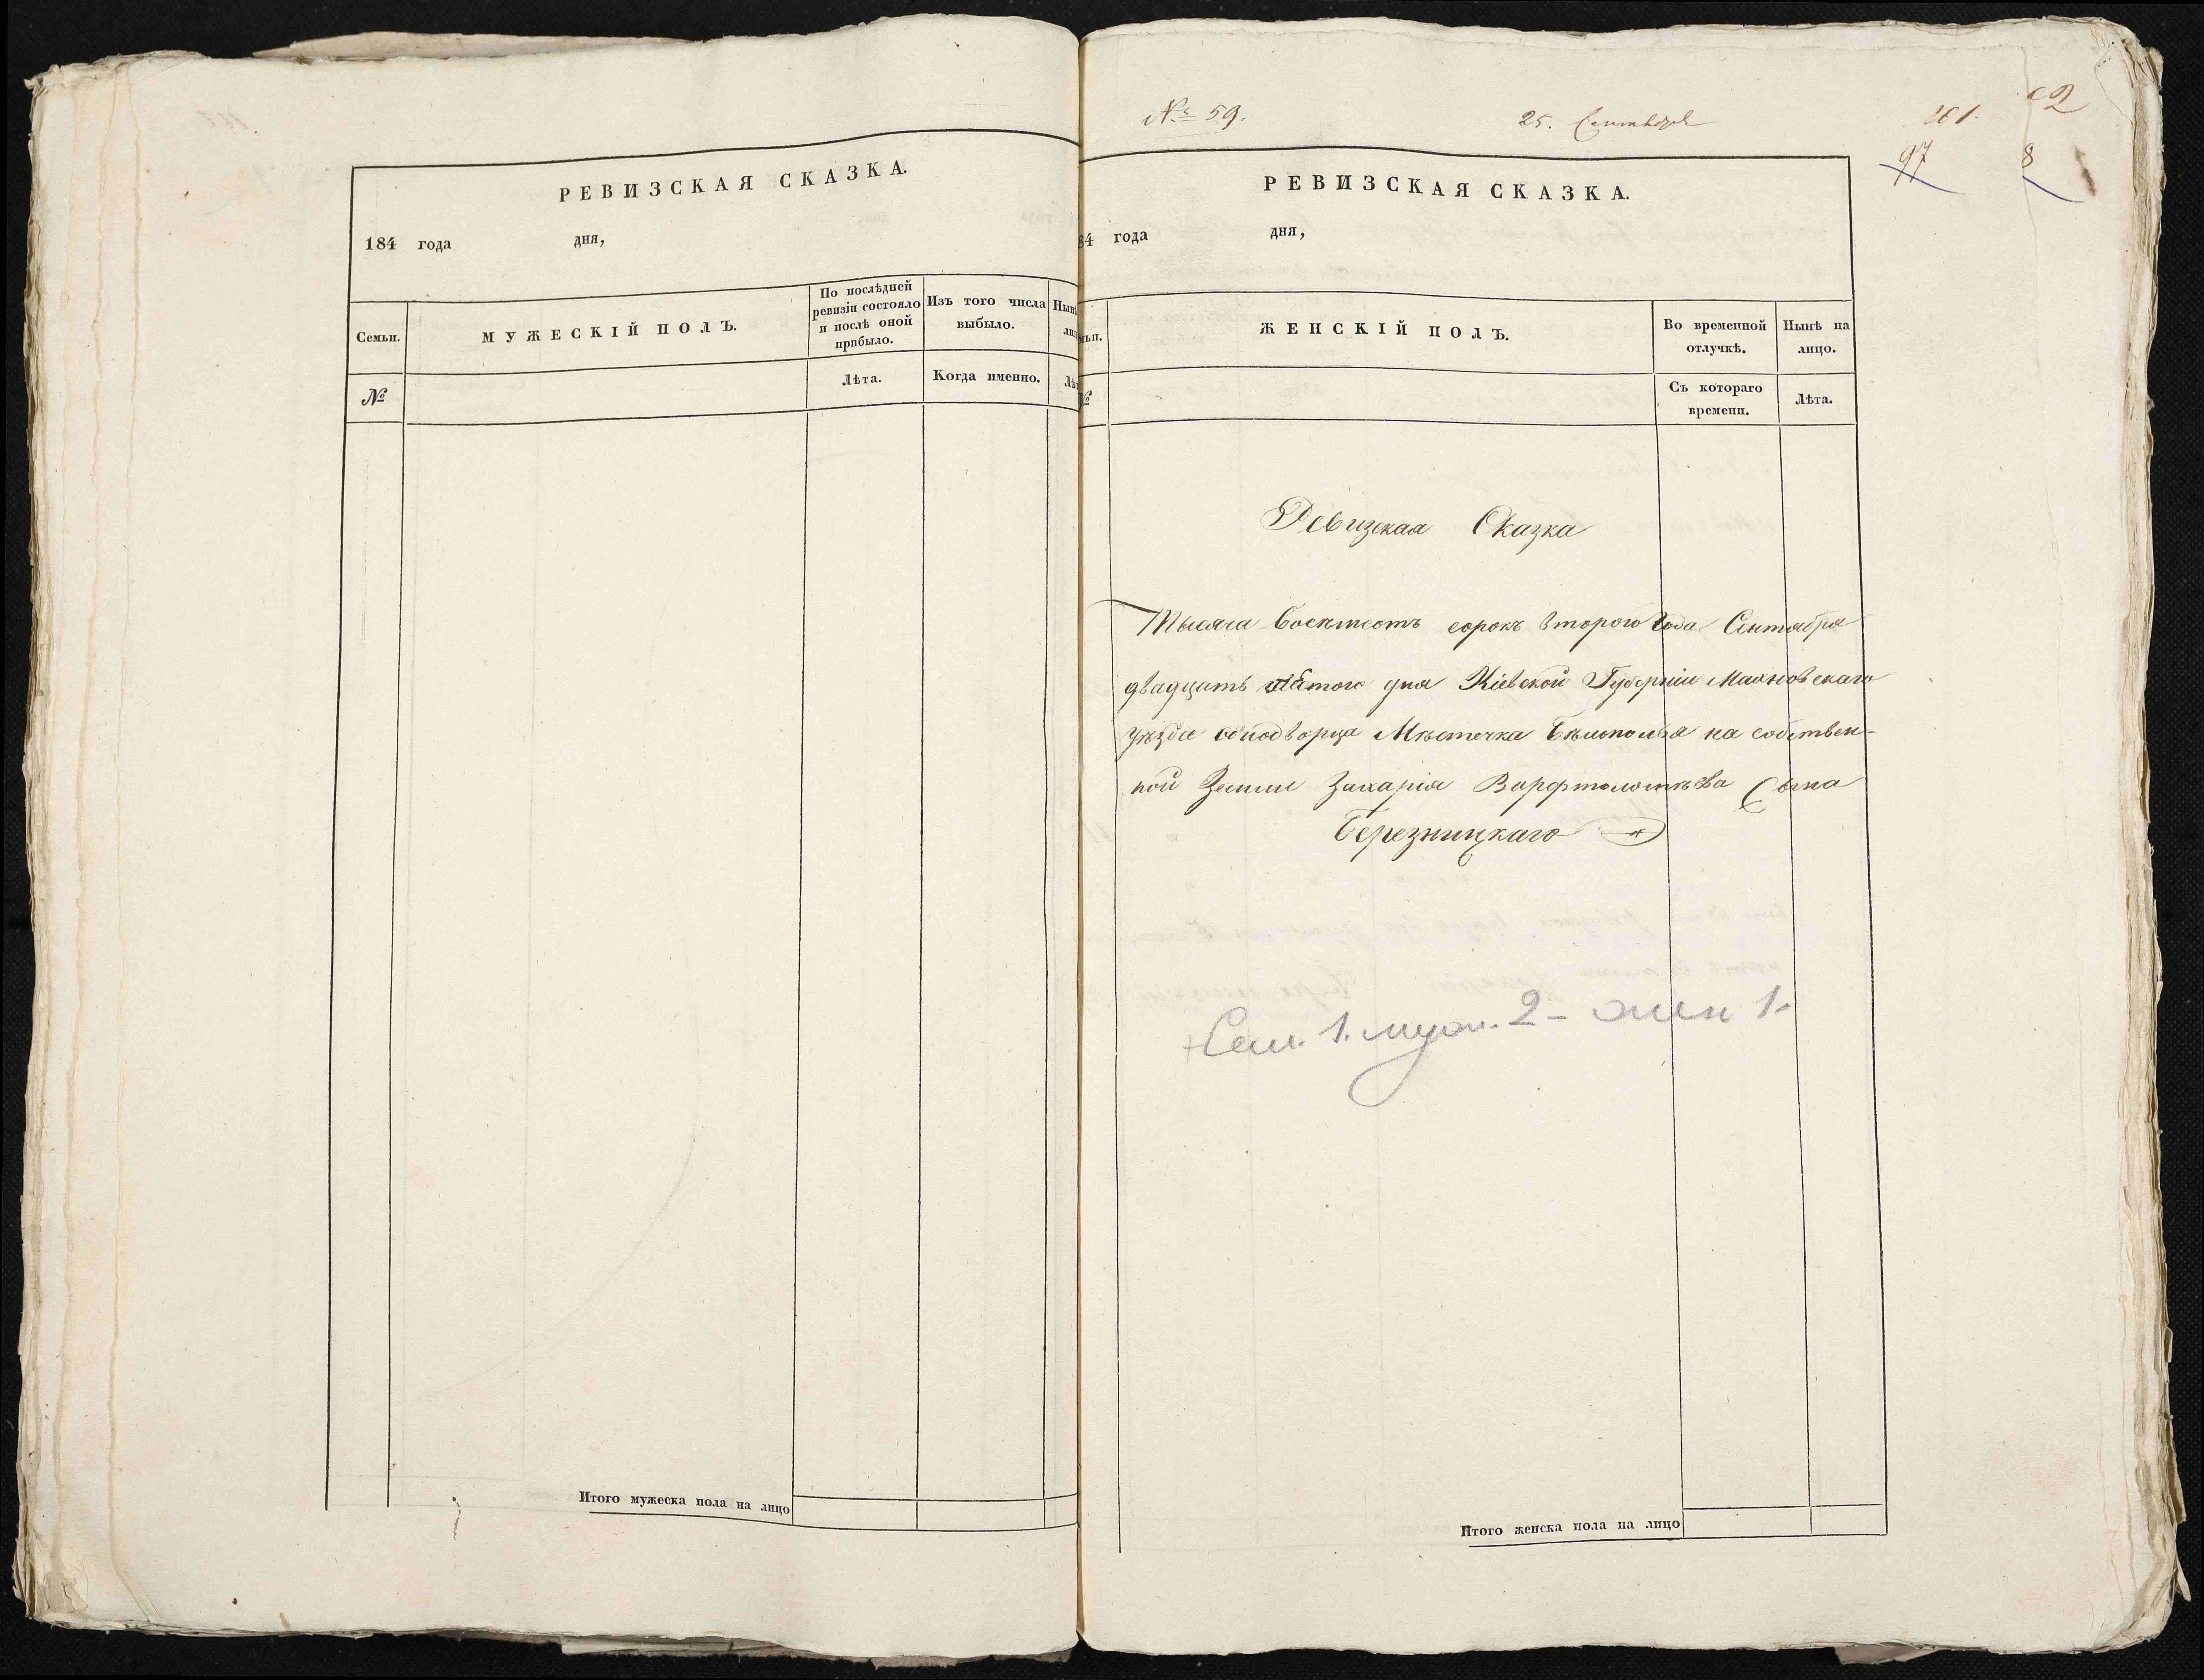 РЕВИЗСКАЯ СКАЗКА.
184 года дня,
Семьи.
МУЖЕСКІЙ ПОЛЪ.
По послѣдней
ревизіи состояло
и послѣ оной
прибыло.
Изъ того числа
выбыло.
№
Лѣта.
Когда именно.
Итого мужеска пола на лицо
№ 59.
25. Сентября
97
8
РЕВИЗСКАЯ СКАЗКА.
84 года дня,
ЖЕНСКІЙ ПОЛЪ.
Во временной
отлучкѣ.
Нынѣ на
лицо.
Съ котораго
времени.
Лѣта.
Ревизская Сказка
Тысяча восемьсотъ сорокъ второго года Сентября
двадцать пятого дня Кіевской Губерніи Махновскаго
уѣзда однодворца Мѣстечка Бѣлополья на собствен-
ной Земли Захарія Варфтоломѣева Сына
Березницкаго
Сем. 1. муж. 2 - жен 1.
Итого женска пола на лицо